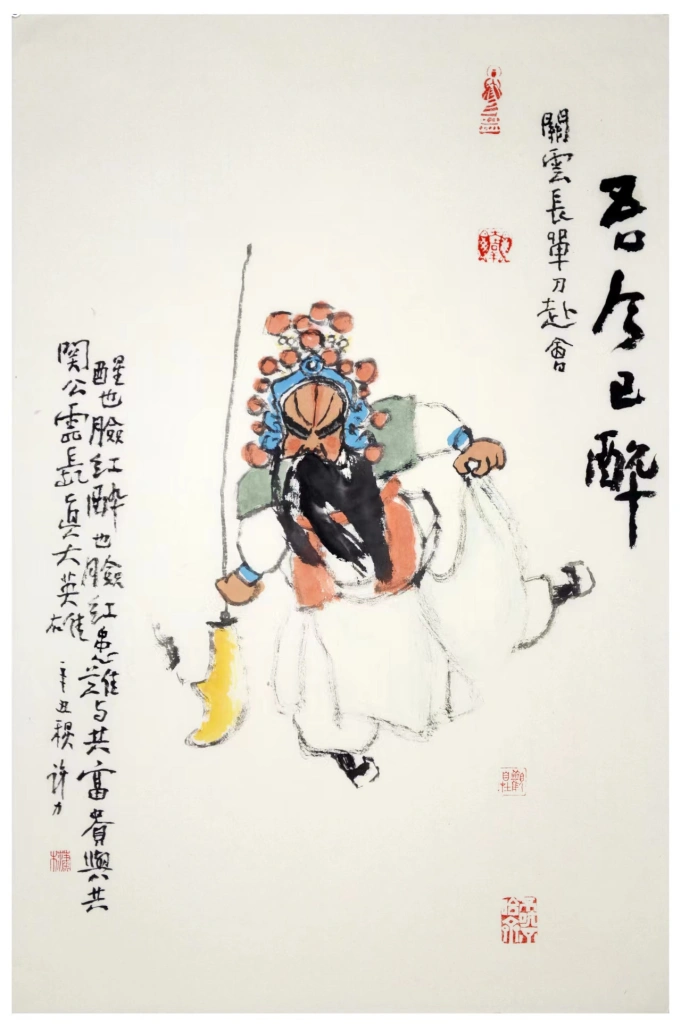 吾今已醉
關雲長單刀赴會
醒也臉紅醉也臉紅患难与共富貴與共
関公雲長真大英雄
辛丑秋 許力
自在